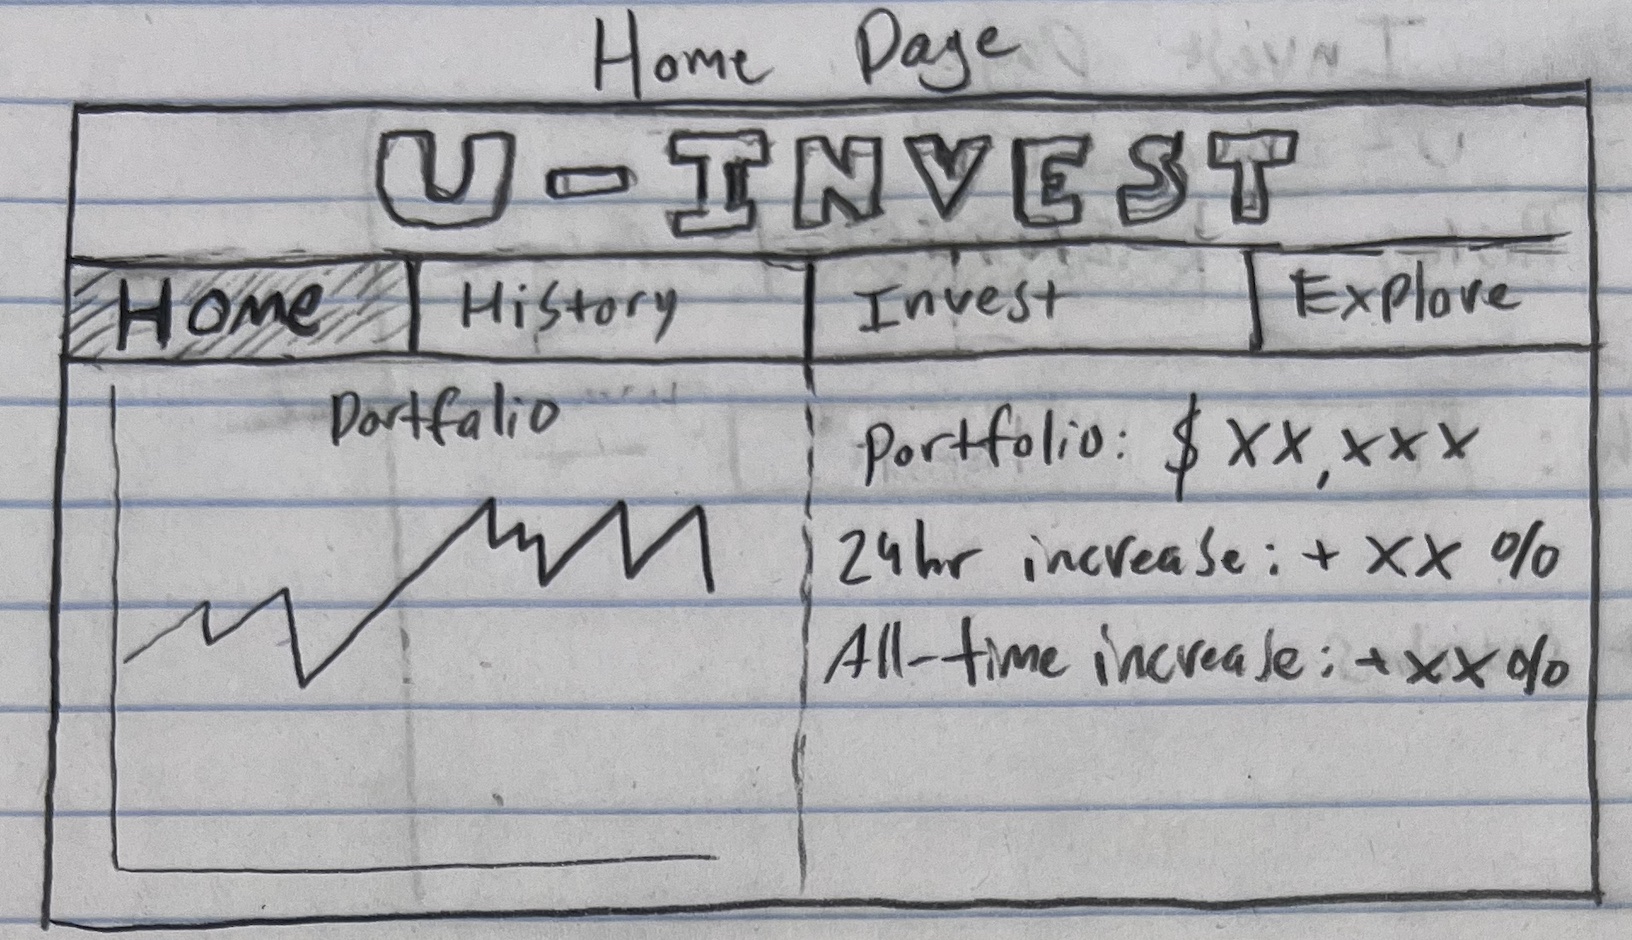 Home Page
U-INVEST
Home History Invest Explore
Portfalio
Portfolio: $ XX,XXX
24hr increase: + XX %
All-time increase: + XX %